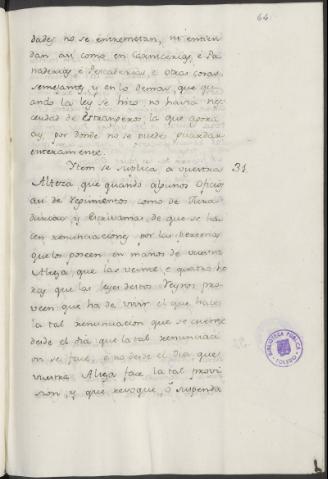 64
dades no se entremetan, ni entien
dan asi como en Carnicerias, è Pa
naderias, è Pescaderias, è otras cosas
semejantes, y en lo demas, que qu
ando la ley se hizo no havia nec
cecidad de estrangeros, la que agora
ay, por donde no se puede guardar
enteramente.
Ytem se suplica a vuestra 31.
Alteza, que quando algunos Ofici
de Regimientos como de
y Escrivanias, de que se ha
cen renunciaciones por las personas
que los poseen, en manos de vuestra
Alteza, que los veinte è quatro
que las leyes destos Reynos pro
veen que ha de vivir el que haces
la tal renunciacion que se cuente
desde el dia que la tal renunciaci
on se face, è no desde el dia que
vuestra Alteza face la tal provi
sion, y que revoque, ò suspenda
BIBLIOTECA PUBLICA
TOLEDO